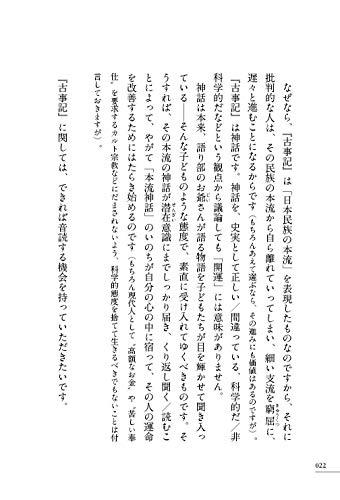 なぜなら、『古事記』は「日本民族の本流」を表現したものなのですから、それに
批判的な人は、その民族の本流から自ら離れていってしまい、細い支流を窮屈に、
遅々と進むことになるからです（もちろんあえて選ぶなら、その進みにも価値はあるのですが）。
『古事記』は神話です。神話を、史実として正しい／間違っている、科学的だ／非
科学的だなどという観点から議論しても「開運」には意味がありません。
神話は本来、語り部のお爺さんが語る物語を子どもたちが目を輝かせて聞き入っ
ている――そんな子どものような態度で、素直に受け入れてゆくべきものです。そ
うすれば、その本流の神話が潜在意識にまでしっかり届き、くり返し聞く／読むこ
とによって、やがて「本流神話」のいのちが自分の心の中に宿って、その人の運命
を改善するためにはたらき始めるのです（もちろん現代人として〝高額なお金〟や〝苦しい奉
仕〟を要求するカルト宗教などにだまされないよう、科学的態度を捨てて生きるべきでもないことは付
言しておきますが）。
『古事記』に関しては、できれば音読する機会を持っていただきたいです。
022